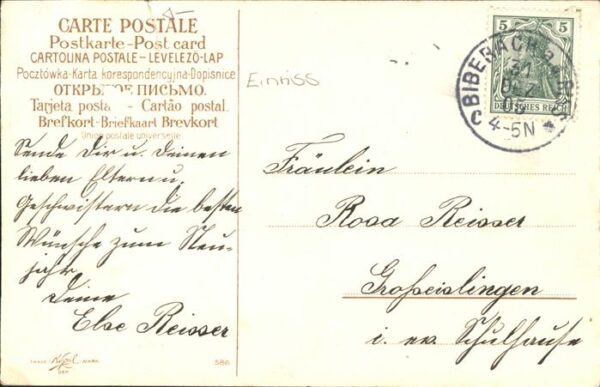 CARTE POSTALE
Postkarte - Post card
CARTOLINA POSTALE - LEVELEZŐ-LAP
Pocztówka - Karta korespondencyjna - Dopisnice
ОТКРЫТОЕ ПИСЬМО.
Tarjeta posta - Cartão postal.
Brefkort - Briefkaart Brevkort
Union postale universelle
Sende Dir u. Deinen
lieben Eltern u.
Geschwistern die besten
Wünsche zum Neu-
jahr
Deine
Else Reisser
TRADE MARK
586
Einriss
5 5
DEUTSCHES REICH
BIBERACH a. RISS
31
DEZ
05
4-5N
C
Fräulein
Rosa Reisser
Großeislingen
i. ev. Schulhause